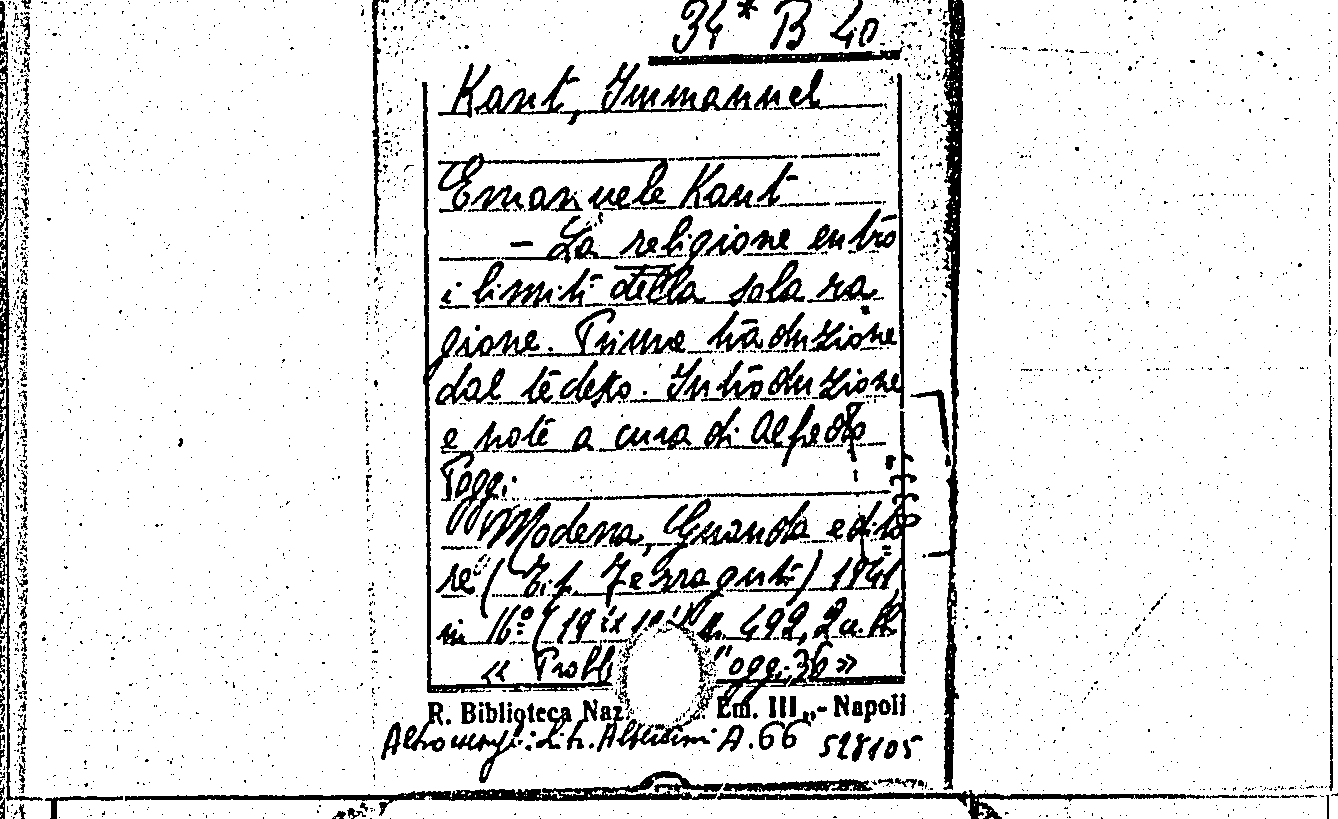 34* B 40
Kant, Immanuel
Emanuele Kant
- La religione entro
i limiti della sola ra
gione. Prima traduzione
dal tedesco. Introduzione
e note a cura di Alfredo
Poggi.
Modena, Guanda edito
re (Tip. Ferraguti) 1941
in 16° (19 p. 492, 2 c.
« Probl oggi, 36 »
R. Biblioteca Naz. Em. III„- Napoli
A. 66 528105